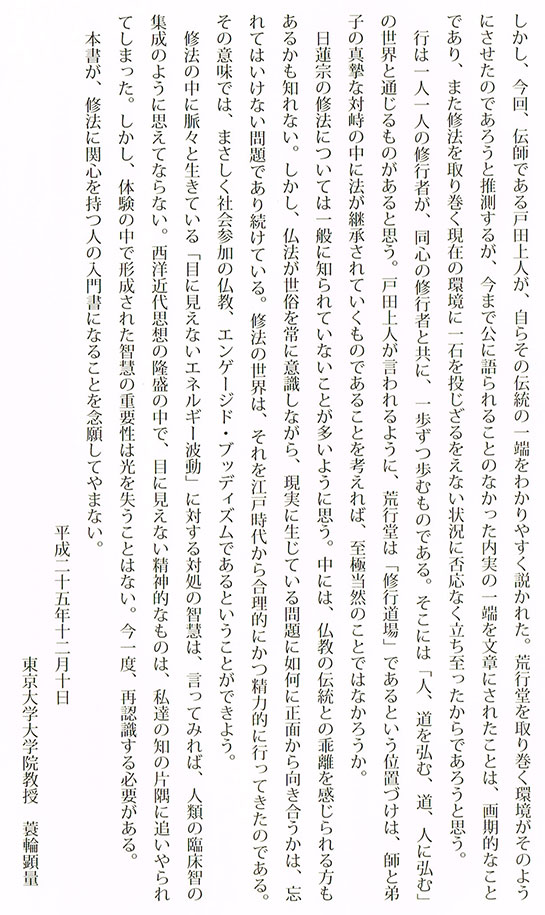 しかし、今回、伝師である戸田上人が、自らその伝統の一端をわかりやすく説かれた。荒行堂を取り巻く環境がそのよう
にさせたのであろうと推測するが、今まで公に語られることのなかった内実の一端を文章にされたことは、画期的なこと
であり、また修法を取り巻く現在の環境に一石を投じざるをえない状況に否応なく立ち至ったからであろうと思う。
行は一人一人の修行者が、同心の修行者と共に、一歩ずつ歩むものである。そこには「人、道を弘む、道、人に弘む」
の世界と通じるものがあると思う。戸田上人が言われるように、荒行堂は「修行道場」であるという位置づけは、師と弟
子の真摯な対峙の中に法が継承されていくものであることを考えれば、至極当然のことではなかろうか。
日蓮宗の修法については一般に知られていないことが多いように思う。中には、仏教の伝統との乖離を感じられる方も
あるかも知れない。しかし、仏法が世俗を常に意識しながら、現実に生じている問題に如何に正面から向き合うかは、忘
れてはいけない問題であり続けている。修法の世界は、それを江戸時代から合理的にかつ精力的に行ってきたのである。
その意味では、まさしく社会参加の仏教、エンゲージド・ブッディズムであるということができよう。
修法の中に脈々と生きている「目に見えないエネルギー波動」に対する対処の智慧は、言ってみれば、人類の臨床智の
集成のように思えてならない。西洋近代思想の隆盛の中で、目に見えない精神的なものは、私達の知の片隅に追いやられ
てしまった。しかし、体験の中で形成された智慧の重要性は光を失うことはない。今一度、再認識する必要がある。
本書が、修法に関心を持つ人の入門書になることを念願してやまない。
平成二十五年十二月十日
東京大学大学院教授　蓑輪顕量